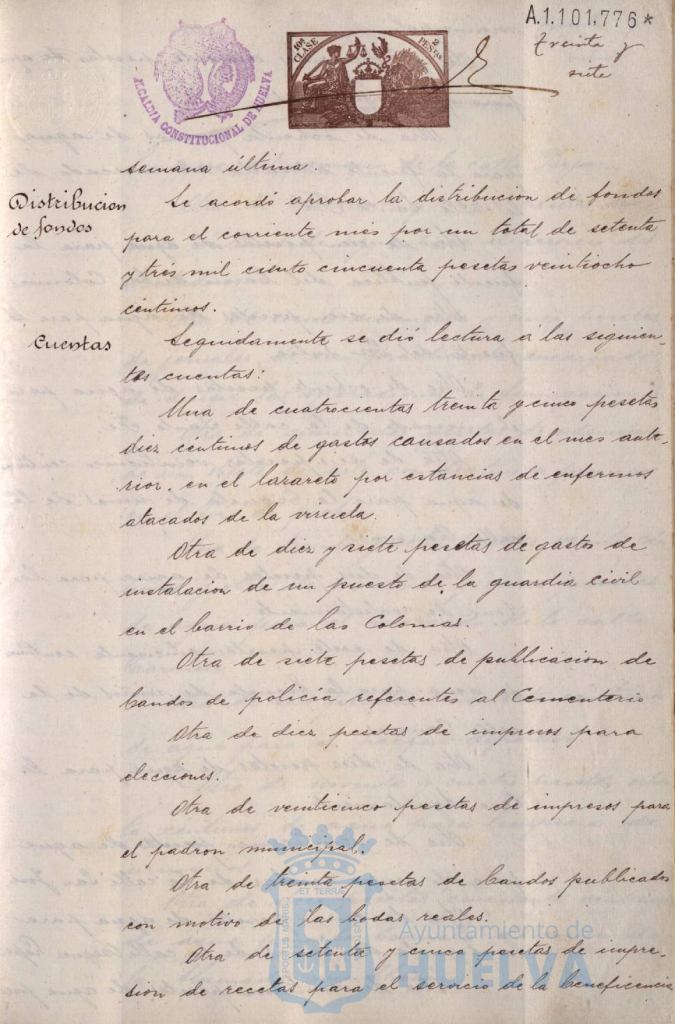 A.1.101.776*
Treinta y
siete
10ª CLASE
2 PESETAS
ALCALDIA CONSTITUCIONAL DE HUELVA
semana última.
Distribucion
de fondos
Se acordó aprobar la distribucion de fondos
para el corriente mes por un total de setenta
y trés mil ciento cincuenta pesetas veintiocho
céntimos.
Cuentas
Seguidamente se dió lectura á las siguien-
tes cuentas:
Una de cuatrocientas treinta y cinco pesetas
diez céntimos de gastos causados en el mes ante-
rior, en el lazareto por estancias de enfermos
atacados de la viruela.
Otra de diez y siete pesetas de gastos de
instalacion de un puesto de la guardia civil
en el barrio de las Colonias.
Otra de siete pesetas de publicacion de
bandos de policía referentes al Cementerio
Otra de diez pesetas de impresos para
elecciones.
Otra de veinticinco pesetas de impresos para
el padron municipal.
Otra de treinta pesetas de bandos publicados
con motivo de las bodas reales.
Otra de setenta y cinco pesetas de impre-
sion de recetas para el servicio de la beneficencia
Ayuntamiento de
HUELVA